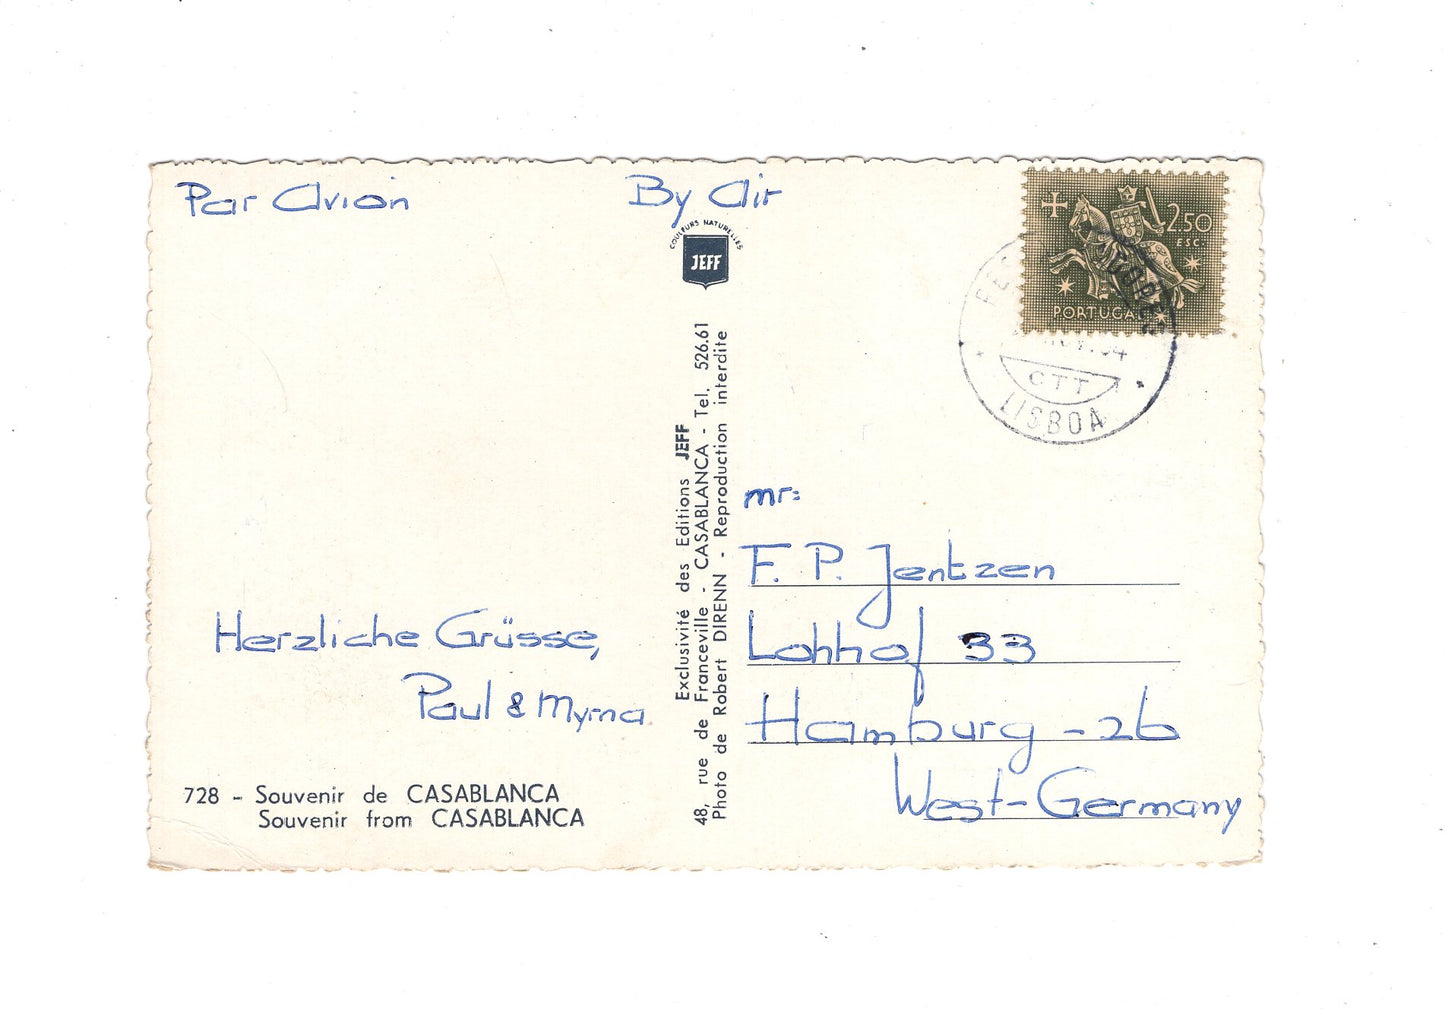 Par Avion
By Air
COULEURS NATURELLES
JEFF
2.50
ESC.
PORTUGAL
CTT
LISBOA
mr:
F. P. Jentzen
Lohhof 33
Hamburg - 26
West-Germany
Herzliche Grüsse,
Paul & Myrna
728 - Souvenir de CASABLANCA
Souvenir from CASABLANCA
Exclusivité des Editions JEFF
48, rue de Franceville - CASABLANCA - Tel. 526.61
Photo de Robert DIRENN - Reproduction interdite